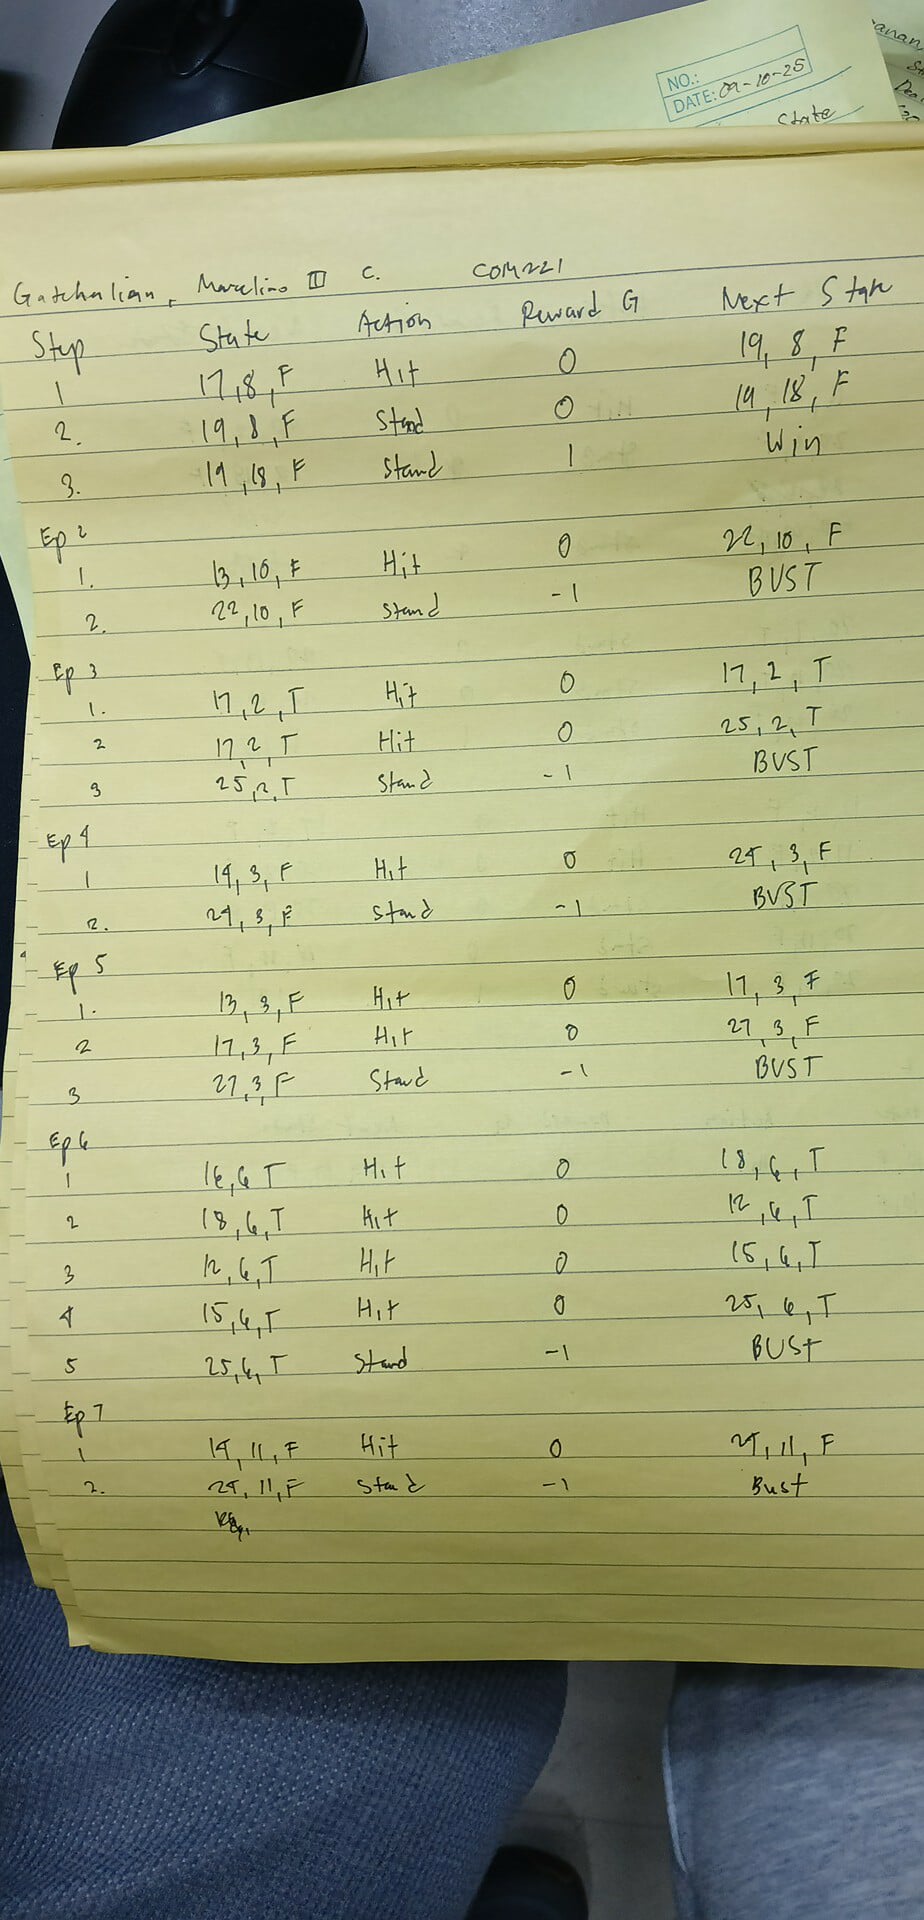 anan,
NO.:
DATE: 09-10-25
State
Gatchalian, Marcelino III C. COM221
Step State Action Reward G Next State
1 17,8,F Hit 0 19, 8, F
2. 19,8,F Stand 0 19,18,F
3. 19,18,F Stand 1 Win
Ep 2
1. 13,10,F Hit 0 22,10,F
2. 22,10,F Stand -1 BUST
Ep 3
1. 17,2,T Hit 0 17,2,T
2 17,2,T Hit 0 25,2,T
3 25,2,T Stand -1 BUST
Ep 4
1 14,3,F Hit 0 24,3,F
2. 24,3,F Stand -1 BUST
Ep 5
1. 13,3,F Hit 0 17,3,F
2 17,3,F Hit 0 27,3,F
3 27,3,F Stand -1 BUST
Ep 6
1 16,6,T Hit 0 18,6,T
2 18,6,T Hit 0 12,6,T
3 12,6,T Hit 0 15,6,T
4 15,6,T Hit 0 25,6,T
5 25,6,T Stand -1 BUST
Ep 7
1 14,11,F Hit 0 24,11,F
2. 24,11,F Stand -1 Bust